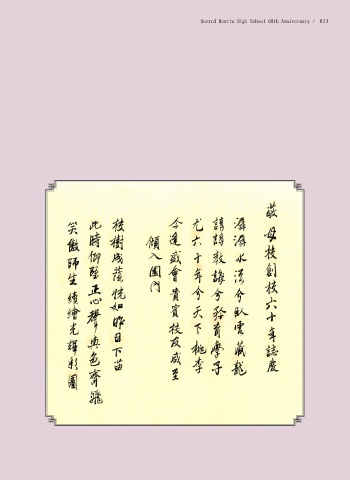 Sacred Hearts High School 60th Anniversary / 033
敬 母校創校六十年誌慶
潺潺水流兮臥雲藏龍
諄諄教誨兮發育學子
尤六十年兮天下桃李
今逢盛會貴賓校友咸至
傾入園門
校樹成蔭恍如昨日下苗
此時仰望正心聲與色齊飛
笑傲師生續繪光輝彩圖